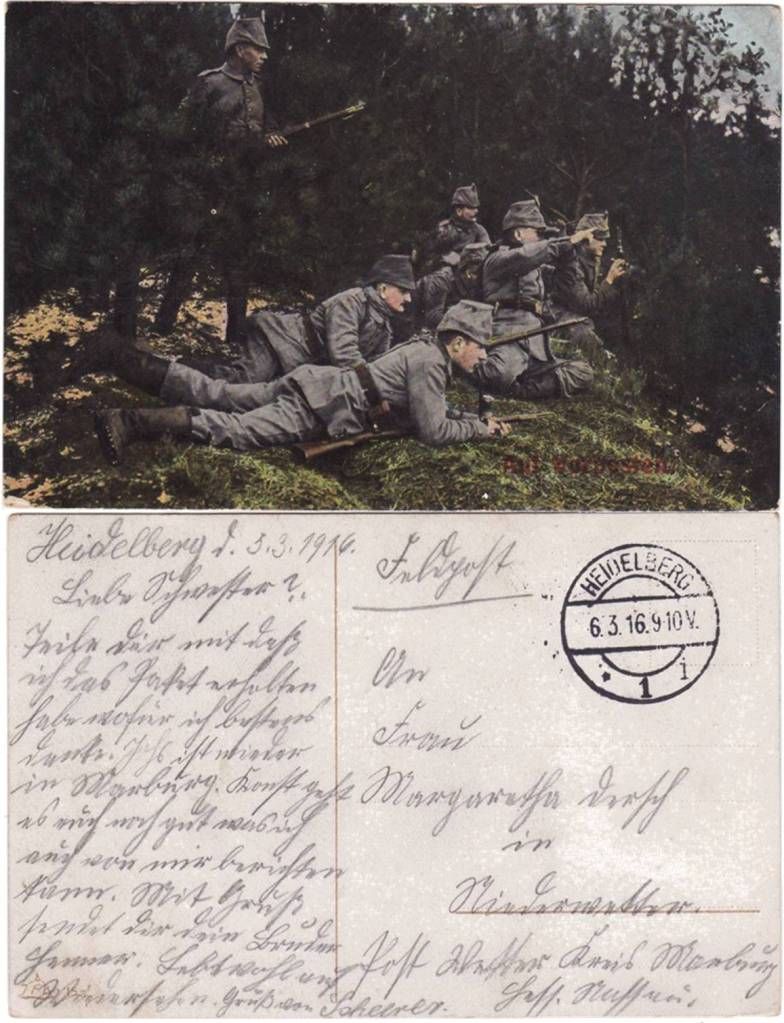 Auf Vorposten.
Heidelberg d. 5.3.1916.
Liebe Schwester?.
Teile dir mit daß
ich das Paket erhalten
habe wofür ich bestens
danke. ist wieder
in Marburg. Sonst geht
es euch noch gut was ich
auch von mir berichten
kann. Mit Gruß
sendet dir dein Bruder
Henner. Lebtwohl auf
Wiedersehn. Gruß von Scheerer.
Feldpost
HEIDELBERG
6.3.16.9-10 V.
* 1 i
An
Frau
Margaretha Dersch
in
Niederwetter.
Post Wetter Kreis Marburg
Hess. Nassau.